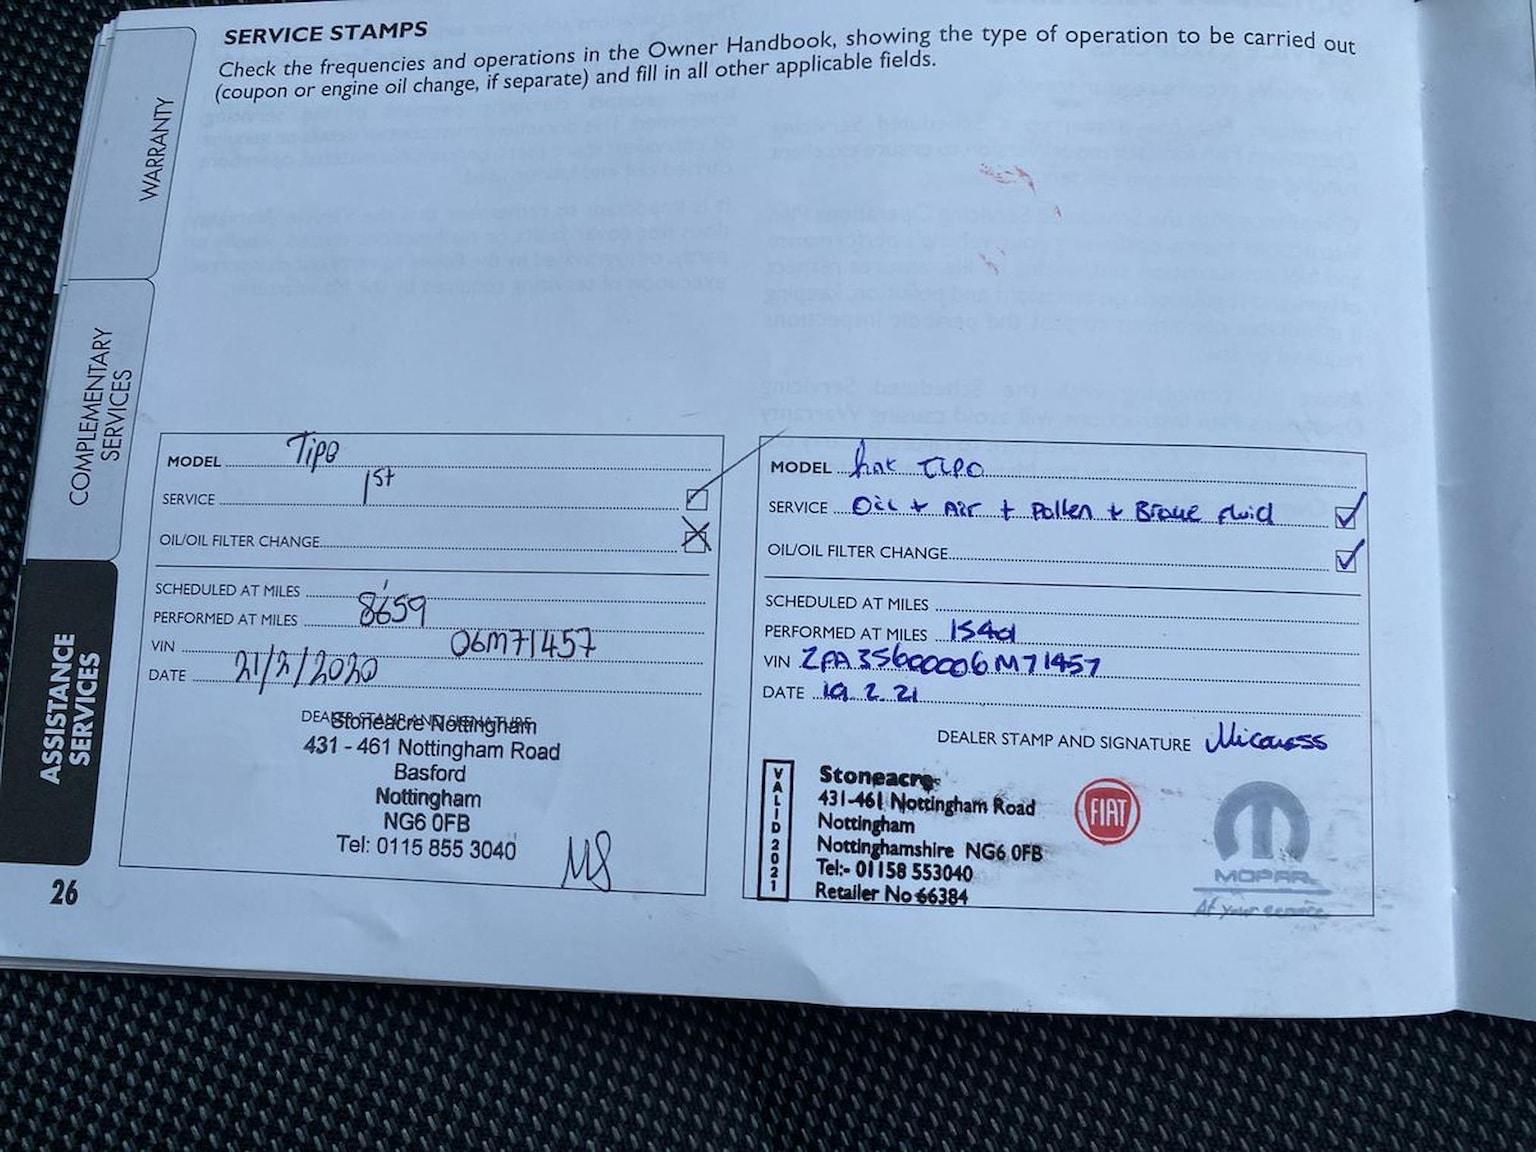 SERVICE STAMPS
Check the frequencies and operations in the Owner Handbook, showing the type of operation to be carried out
(coupon or engine oil change, if separate) and fill in all other applicable fields.
WARRANTY
COMPLEMENTARY
SERVICES
ASSISTANCE
SERVICES
26
MODEL Tipo
SERVICE 1st
OIL/OIL FILTER CHANGE
SCHEDULED AT MILES
PERFORMED AT MILES 8659
VIN 06M71457
DATE 21/2/2020
DEALER STAMP AND SIGNATURE
Stoneacre Nottingham
431 - 461 Nottingham Road
Basford
Nottingham
NG6 0FB
Tel: 0115 855 3040
MODEL fiat TIPO
SERVICE Oil + Air + Pollen + Brake fluid
OIL/OIL FILTER CHANGE
SCHEDULED AT MILES
PERFORMED AT MILES
VIN ZFA35600006M71457
DATE 19.2.21
DEALER STAMP AND SIGNATURE
VALID 2021
Stoneacre
431-461 Nottingham Road
Nottingham
Nottinghamshire NG6 0FB
Tel:- 01158 553040
Retailer No 66384
FIAT
MOPAR
At your service